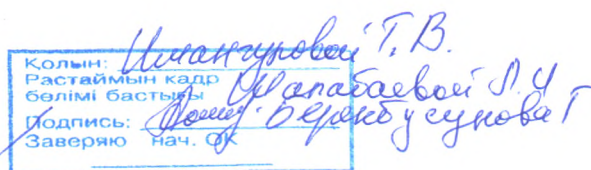 Қолын: Имангуловой Т. В.
Растаймын кадр
бөлімі бастығы Шалабаевой Л. И
Подпись:
Заверяю нач. ОК